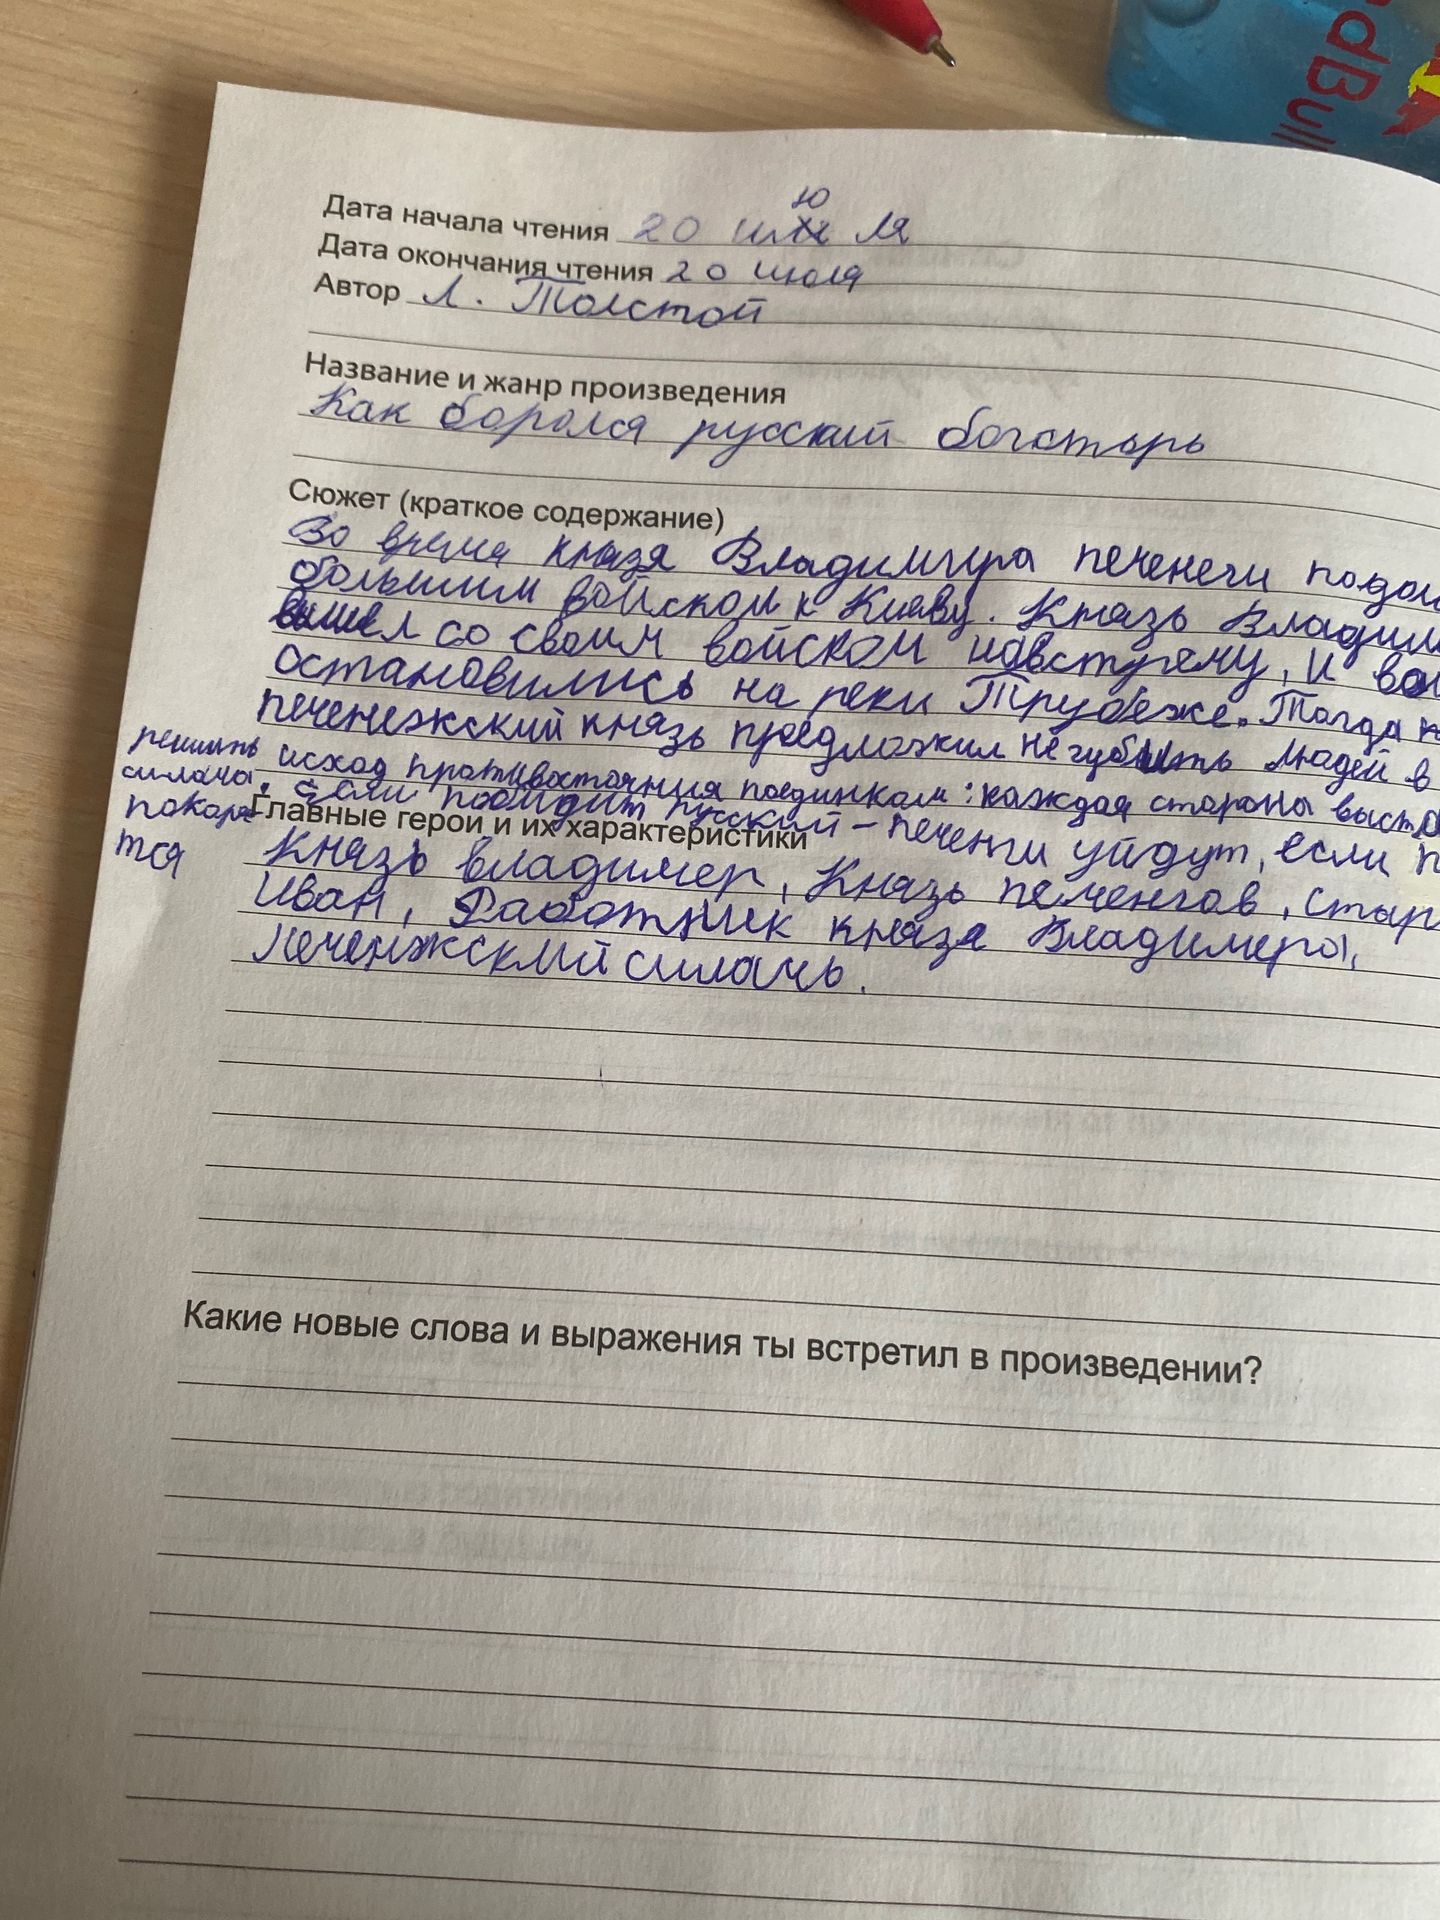 RedBull
ю
Дата начала чтения 20 июля
Дата окончания чтения 20 июля
Автор Л. Толстой
Название и жанр произведения
Как боролся русский богатырь
Сюжет (краткое содержание)
Во время князя Владимира печенеги
большим войском к Киеву. Князь
вышел со своим войском навстречу, и
остановились на реки Трубеже. Тогда
печенежский князь предложил не губить людей в
решить исход противостояния поединком: каждая сторона
силача. Если победит русский – печенги уйдут, если
покоря
тся
Главные герои и их характеристики
Князь владимер, Князь печенгов,
Иван, Работник князя Владимера,
Печенжский силачь.
Какие новые слова и выражения ты встретил в произведении?